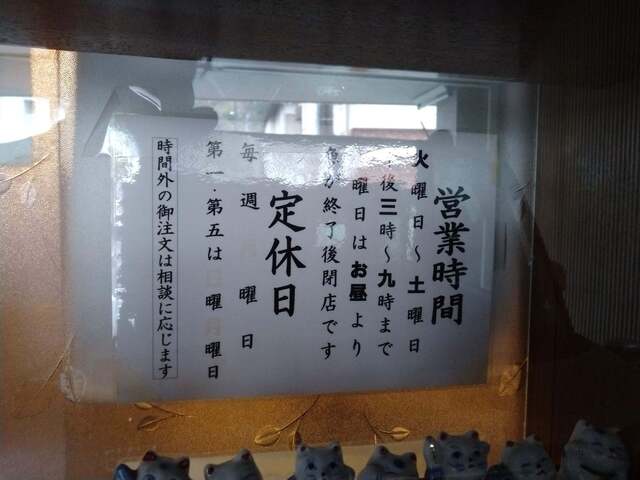 営業時間
火曜日～土曜日
後三時～九時まで
曜日はお昼より
が終了後閉店です
定休日
毎週 曜日
第一・第五は 曜日
時間外の御注文は相談に応じます